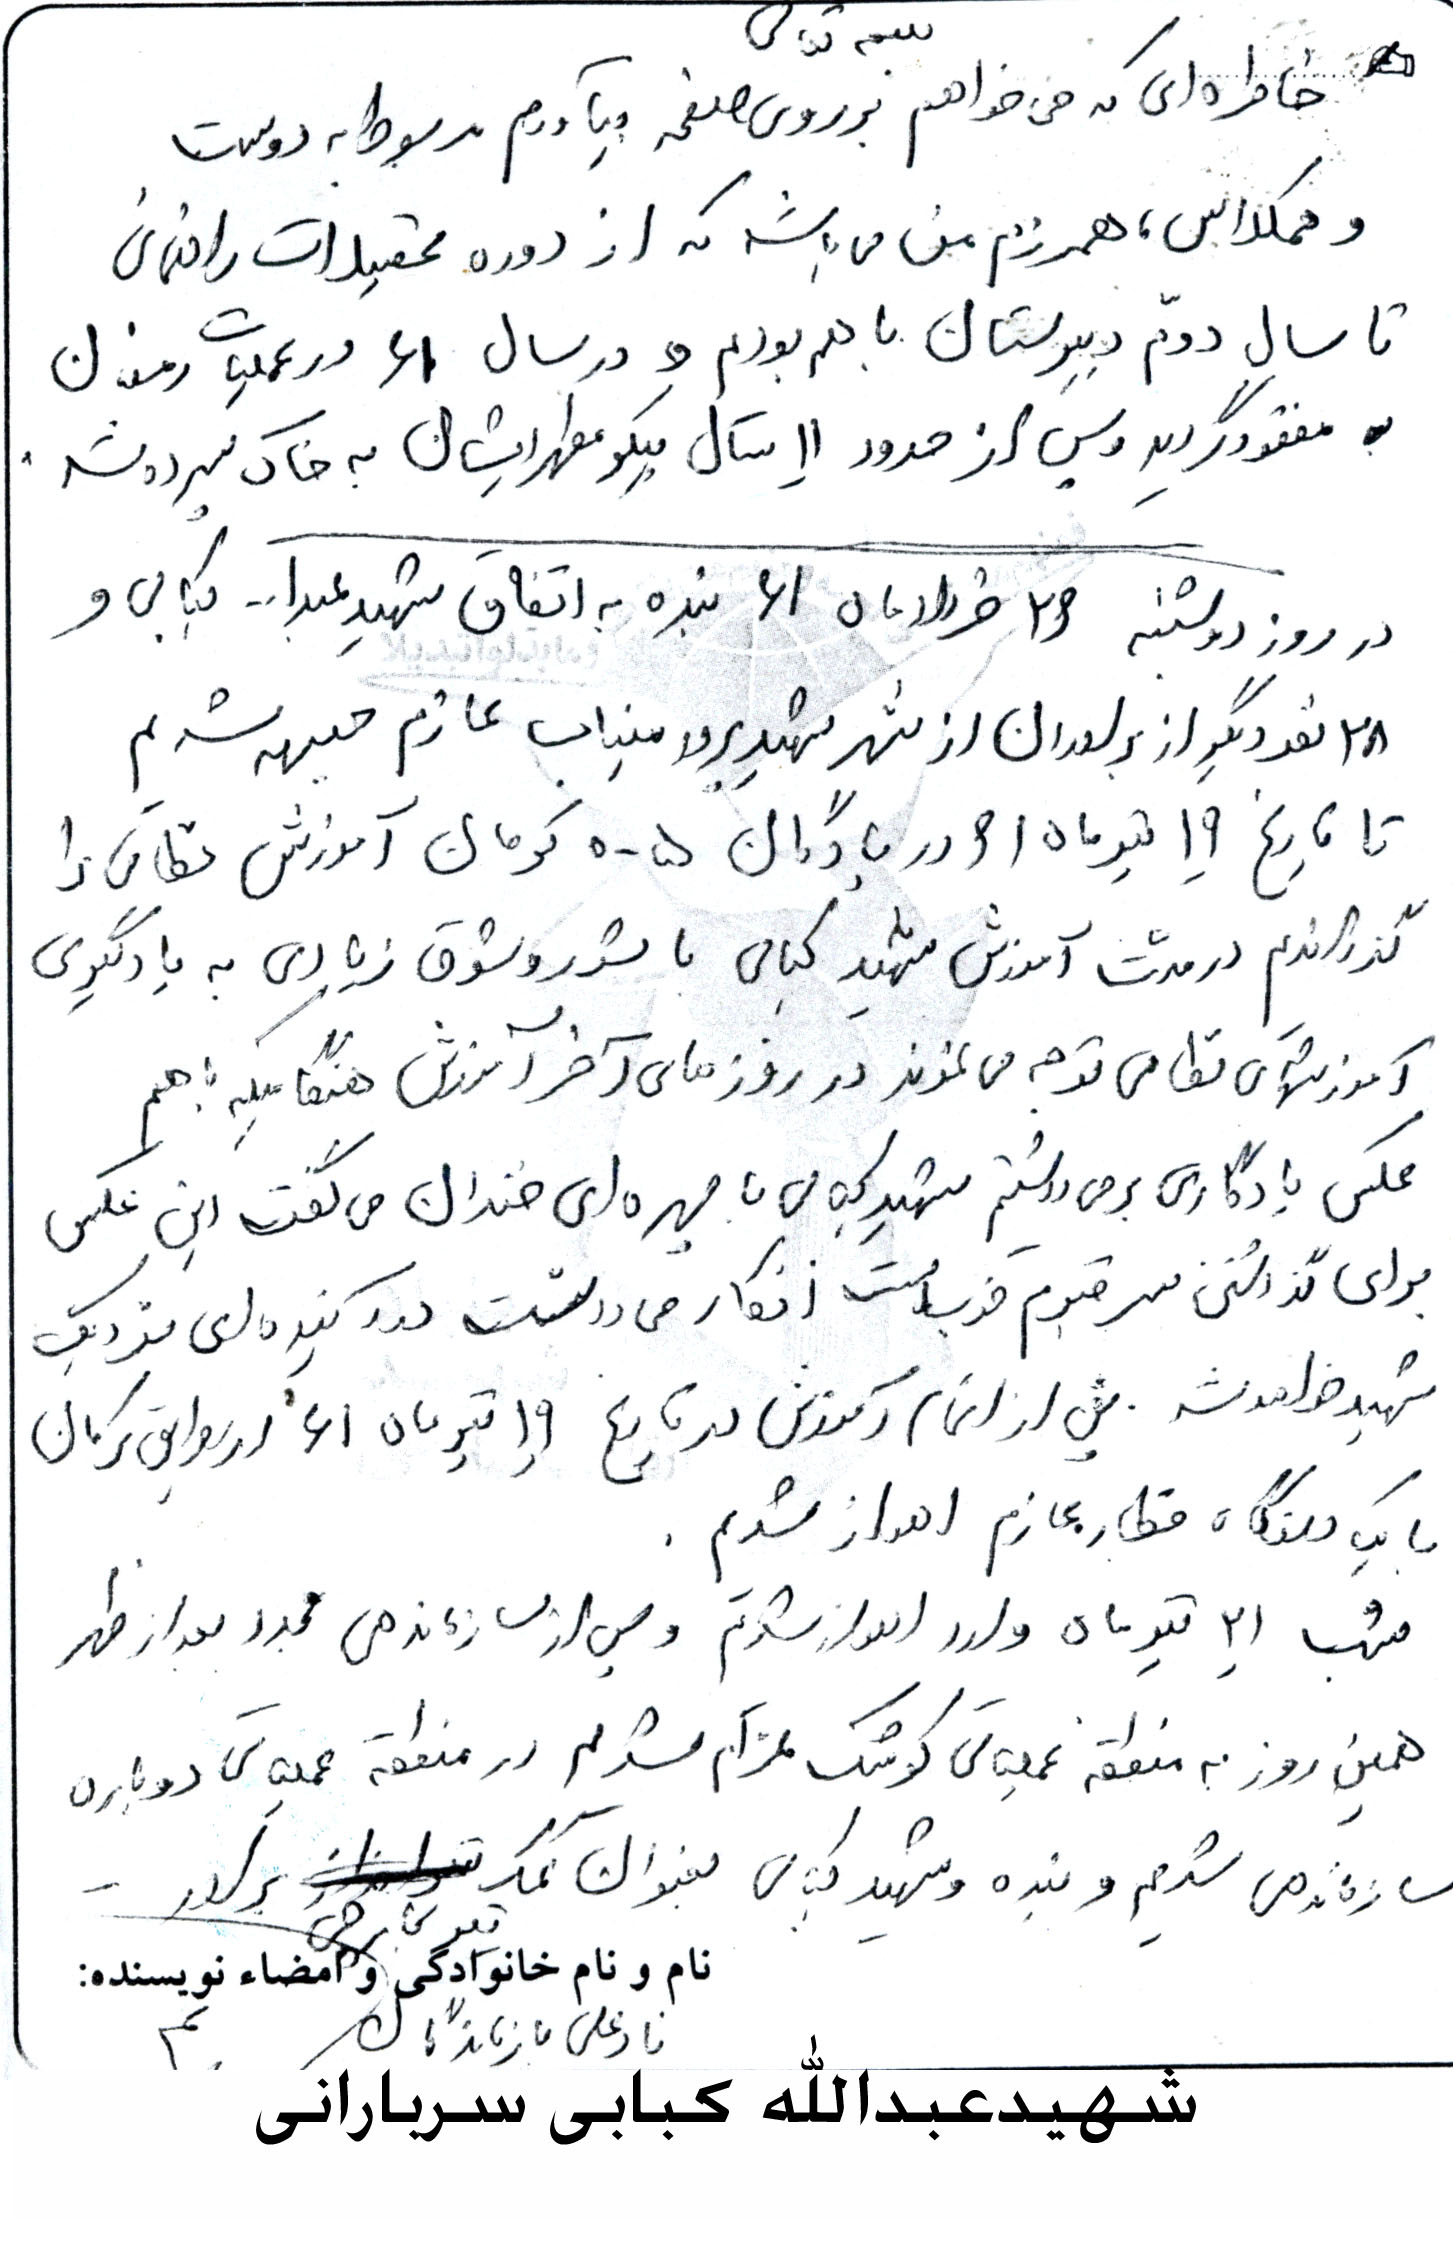 بسمه تعالی
خاطره‌ای که می‌خواهم بر روی صفحه بیآورم مربوط به دوست
و همکلاس، همرزم من می باشد که از دوره تحصیلات راهنمائی
تا سال دوّم دبیرستان با هم بودیم و در سال ۶۱ در عملیات رمضان
مفقود گردید و پس از حدود ۱۱ سال پیکر مطهر ایشان به خاک سپرده شد.
در روز دوشنبه ۲۶ خرداد ماه ۶۱ بنده به اتفاق شهید عبدا... کبابی و
۲۸ نفر دیگر از برادران از شهر شهید پرور میناب عازم جبهه شدیم
تا تاریخ ۱۹ تیر ماه ۶۱ در پادگان ۰۵ کرمان آموزش نظامی را
گذراندیم در مدت آموزش شهید کبابی با شور و شوق زیادی به یادگیری
آموزشهای نظامی توجه می نمود در روزهای آخر آموزش هنگامیکه با هم
عکس یادگاری برمی داشتیم شهید کبابی با چهره‌ای خندان می گفت این عکس
برای گذاشتن سر قبرم خوب است انگار می دانست در آینده‌ای نزدیک
شهید خواهد شد. پس از اتمام آموزش در تاریخ ۱۹ تیر ماه ۶۱ از کرمان
با یک دستگاه قطار عازم اهواز شدیم.
شب ۲۱ تیر ماه وارد اهواز شدیم و پس از سازماندهی مجدد بعد از ظهر
همین روز به منطقه عملیاتی کوشک اعزام شدیم در منطقه عملیاتی دوباره
سازماندهی شدیم و بنده و شهید کبابی بعنوان کمک برادر
تیربارچی
نام و نام خانوادگی و امضاء نویسنده:
نادعلی بازماندگان
شهیدعبدالله کبابی سربارانی